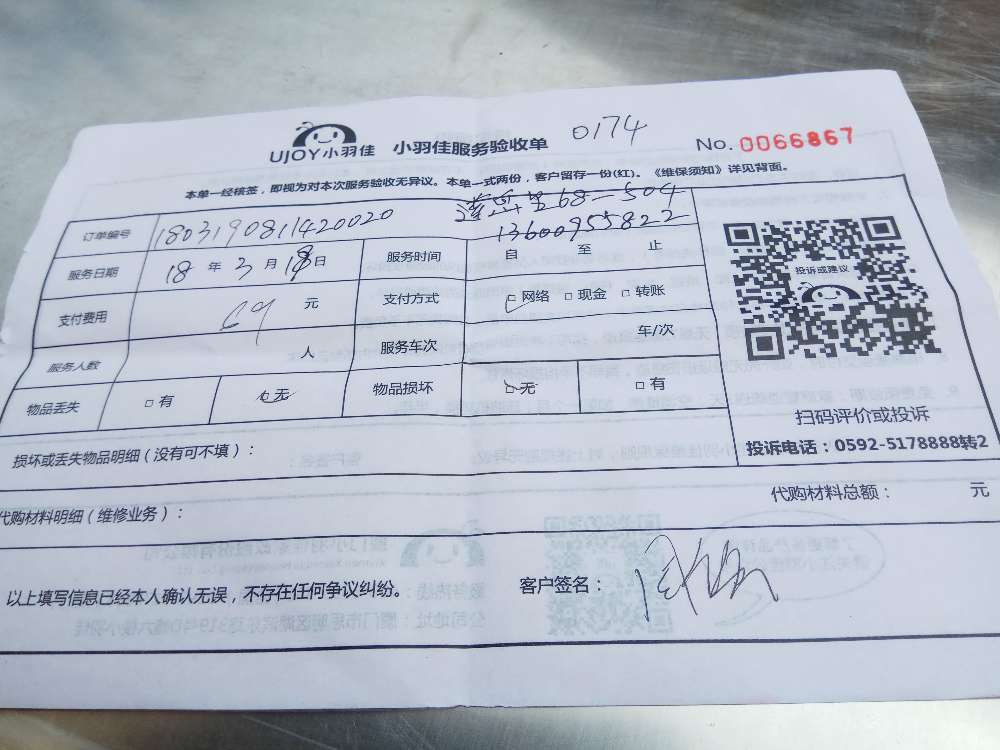 UJOY小羽佳 小羽佳服务验收单 0174 No.0066867
本单一经核签，即视为对本次服务验收无异议。本单一式两份，客户留存一份(红)。《维保须知》详见背面。
68-504
13600955822
订单编号 1803190811420020
服务日期 18年3月18日 服务时间 自 至 止
支付费用 69 元 支付方式 □网络 □现金 □转账
服务人数 人 服务车次 车/次
物品丢失 □有 □无 物品损坏 □无 □有
投诉或建议
扫码评价或投诉
投诉电话：0592-5178888转2
损坏或丢失物品明细（没有可不填）：
代购材料明细（维修业务）： 代购材料总额： 元
以上填写信息已经本人确认无误，不存在任何争议纠纷。 客户签名：